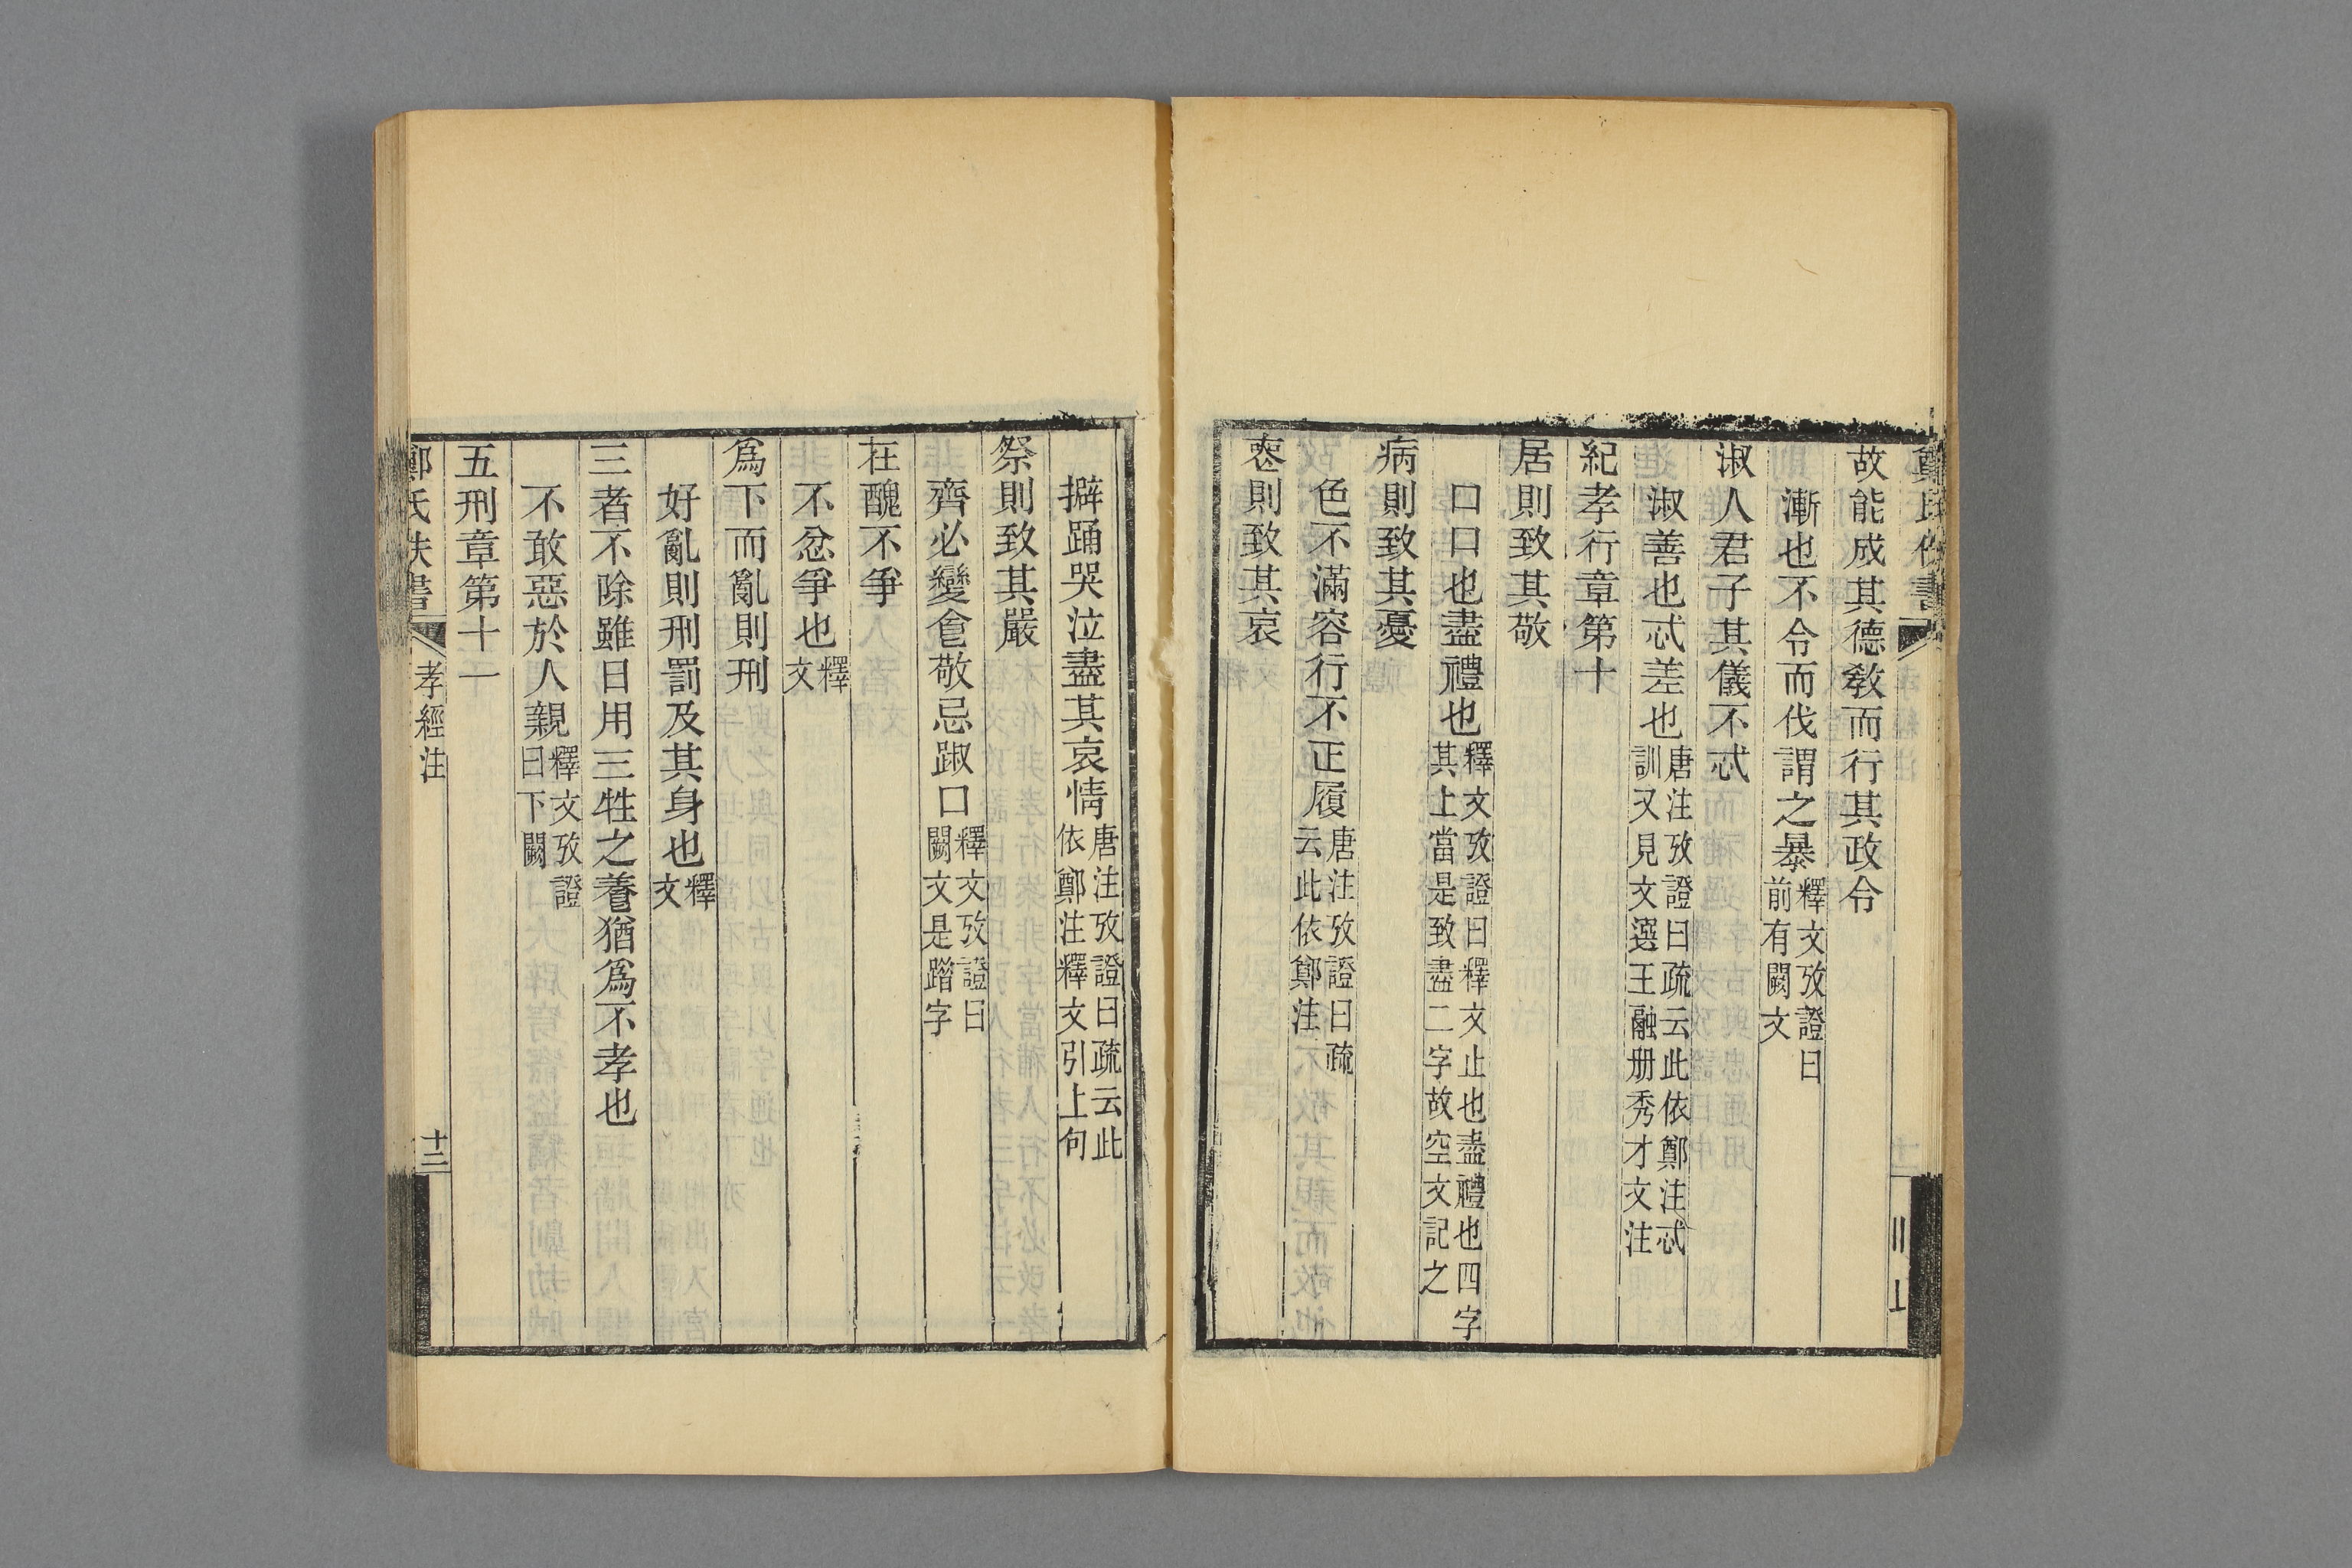 故能成其德敎而行其政令
漸也不令而伐謂之暴釋文攷證曰前有闕文
淑人君子其儀不忒
淑善也忒差也唐注攷證曰疏云此依鄭注忒訓又見文選王融册秀才文注
紀孝行章第十
居則致其敬
口口也盡禮也釋文攷證曰釋文止也盡禮也四字其上當是致盡二字故空文記之
病則致其憂
色不滿容行不正履唐注攷證曰疏云此依鄭注
喪則致其哀
擗踊哭泣盡其哀情唐注攷證曰疏云此依鄭注釋文引上句
祭則致其嚴
齊必變食敬忌踧口釋文攷證曰闕文是踖字
在醜不爭
不忿爭也釋文
爲下而亂則刑
好亂則刑罰及其身也釋文
三者不除雖日用三牲之養猶爲不孝也
不敢惡於人親釋文攷證曰下闕
五刑章第十一
鄭氏佚書 孝經注 十二